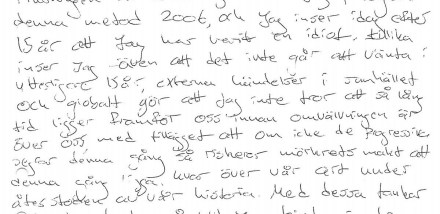 denna metod 2006, och Jag inser idag efter
15 år att Jag har varit en idiot, tillika
inser Jag även att det inte går att vänta i
ytterligare 15 år, externa händelser i samhället
och globalt gör att Jag inte tror att så lång
tid ligger framför oss innan omvälvningen är
över oss, med tillägget att om icke de Progressiva
segrar denna gång så riskerar mörkrets makt att
denna gång över vår art under
återstoden av vår historia. Med dessa tankar